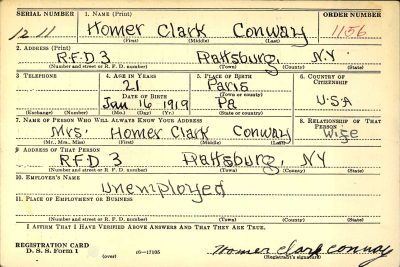 SERIAL NUMBER 1. NAME (Print) ORDER NUMBER
1211 Homer Clark Conway 1156
(First) (Middle) (Last)
2. ADDRESS (Print)
R.F.D 3 Prattsburg, N.Y
(Number and street or R. F. D. number) (Town) (County) (State)
3. TELEPHONE 4. AGE IN YEARS 5. PLACE OF BIRTH 6. COUNTRY OF CITIZENSHIP
21 Paris
DATE OF BIRTH (Town or county)
Jan 16 1919 Pa USA
(Exchange) (Number) (Mo.) (Day) (Yr.) (State or country)
7. NAME OF PERSON WHO WILL ALWAYS KNOW YOUR ADDRESS 8. RELATIONSHIP OF THAT PERSON
Mrs. Homer Clark Conway Wife
(Mr., Mrs., Miss) (First) (Middle) (Last)
9. ADDRESS OF THAT PERSON
RFD 3 Prattsburg, NY
(Number and street or R. F. D. number) (Town) (County) (State)
10. EMPLOYER'S NAME
unemployed
11. PLACE OF EMPLOYMENT OR BUSINESS
(Number and street or R. F. D. number) (Town) (County) (State)
I AFFIRM THAT I HAVE VERIFIED ABOVE ANSWERS AND THAT THEY ARE TRUE.
REGISTRATION CARD
D. S. S. Form 1 (over) 16—17105 Homer Clark Conway
(Registrant's signature)